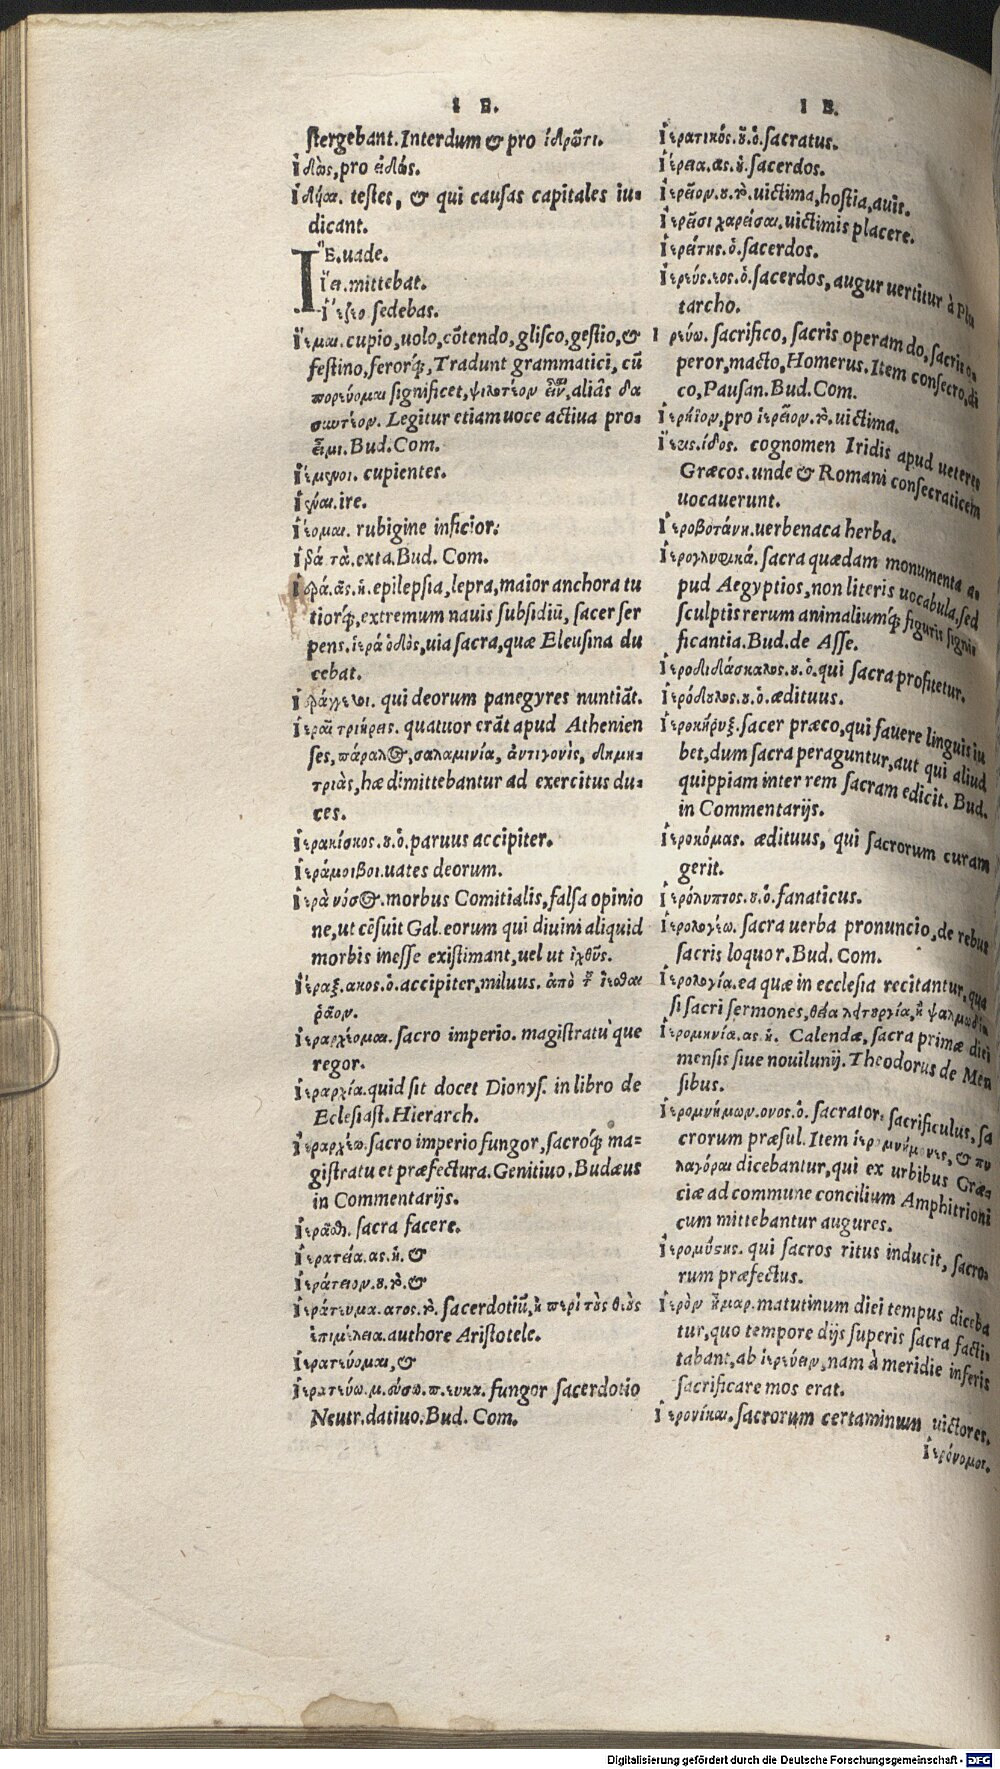 I E.
stergebant. Interdum & pro ἱδρῶτι.
ἰδὼς, pro εἰδώς.
ἰδύαι. testes, & qui causas capitales iu-
dicant.
Ἴ E. uade.
ἵει. mittebat.
ἵζετο sedebas.
ἵεμαι. cupio, uolo, cõtendo, glisco, gestio, &
festino, ferorq́;, Tradunt grammatici, cũ
πορεύομαι significet, ψιλοτέον εἶναι, aliâs δα
σωτέον. Legitur etiam uoce actiua pro-
εἶμι. Bud. Com.
ἱέμενοι. cupientes.
ἰέναι. ire.
ἰέομαι. rubigine inficior:
ἱερά τὰ. exta. Bud. Com.
ἱερά. ᾶς. ἡ. epilepsia, lepra, maior anchora tu
tiorq́;, extremum nauis subsidiũ, sacer ser
pens. ἱερά ὁδὸς, uia sacra, quæ Eleusina du
cebat.
ἱεράγγελοι. qui deorum panegyres nuntiãt.
ἱεραῖ τριήρεις. quatuor erãt apud Athenien
ses, πάραλος, σαλαμινία, ἀντιγονὶς, δημη-
τριὰς, hæ dimittebantur ad exercitus du-
ces.
ἱερακίσκος. ου. ὁ. paruus accipiter.
ἱεράμοιβοι. uates deorum.
ἱερὰ νόσος. morbus Comitialis, falsa opinio
ne, ut cẽsuit Gal. eorum qui diuini aliquid
morbis inesse existimant, uel ut ἰχθῦς.
ἱέραξ. ακος. ὁ. accipiter, miluus. ἀπὸ τοῦ ἵεσθαι
ῥᾷον.
ἱεραρχέομαι. sacro imperio. magistratu que
regor.
ἱεραρχία. quid sit docet Dionys. in libro de
Eclesiast. Hierarch.
ἱεραρχέω. sacro imperio fungor, sacroq́; ma-
gistratu et præfectura. Genitiuo. Budæus
in Commentarijs.
ἱερᾶσθαι. sacra facere.
ἱερατεία. ας. ἡ. &
ἱεράτειον. ου. τὸ. &
ἱεράτευμα. ατος. τὸ. sacerdotiũ, ἡ περὶ τοὺς θεοὺς
ἐπιμέλεια. authore Aristotele.
ἱερατεύομαι, &
ἱερατεύω. μ. εύσω. π. ευκα. fungor sacerdotio
Neutr. datiuo. Bud. Com.
I E.
ἱερατικός. οῦ. ὁ. sacratus.
ἱέρεια. ας. ἡ. sacerdos.
ἱερεῖον. ου. τὸ. uictima, hostia, auis.
ἱερεῖσι χαρεῖσαι. uictimis placere.
ἱερείτης. ὁ. sacerdos.
ἱερεύς. έος. ὁ. sacerdos, augur uertitur à Plu
tarcho.
ἱερεύω. sacrifico, sacris operam do, sacris o-
peror, macto, Homerus. Item consecro, di
co, Pausan. Bud. Com.
ἱερήϊον, pro ἱερεῖον. τὸ. uictima.
ἵερις. ιδος. cognomen Iridis apud ueteres
Græcos. unde & Romani consecraticem
uocauerunt.
ἱεροβοτάνη. uerbenaca herba.
ἱερογλυφικά. sacra quædam monumenta a-
pud Aegyptios, non literis uocabula, sed
sculptis rerum animaliumq́; figuris signi-
ficantia. Bud. de Asse.
ἱεροδιδάσκαλος. ου. ὁ. qui sacra profitetur.
ἱερόδουλος. ου. ὁ. ædituus.
ἱεροκήρυξ. sacer præco, qui fauere linguis iu
bet, dum sacra peraguntur, aut qui aliud
quippiam inter rem sacram edicit. Bud.
in Commentarijs.
ἱεροκόμας. ædituus, qui sacrorum curam
gerit.
ἱερόληπτος. ου. ὁ. fanaticus.
ἱερολογέω. sacra uerba pronuncio, de rebus
sacris loquor. Bud. Com.
ἱερολογία. ea quæ in ecclesia recitantur, qua
si sacri sermones, θεία λειτουργία, ἢ ψαλμωδία
ἱερομηνία. ας. ἡ. Calendæ, sacra primæ diei
mensis siue nouilunij. Theodorus de Men
sibus.
ἱερομνήμων. ονος. ὁ. sacrator, sacrificulus, sa
crorum præsul. Item ἱερομνήμονες, & πυ
λαγόραι dicebantur, qui ex urbibus Græ
ciæ ad commune concilium Amphitrioni
cum mittebantur augures.
ἱερομύστης. qui sacros ritus inducit, sacro-
rum præfectus.
ἱερὸν ἦμαρ. matutinum diei tempus diceba
tur, quo tempore dijs superis sacra facti-
tabant, ab ἱερεύειν, nam à meridie inferis
sacrificare mos erat.
ἱερονίκαι. sacrorum certaminum uictores.
ἱερόνομοι.
Digitalisierung gefördert durch die Deutsche Forschungsgemeinschaft - DFG